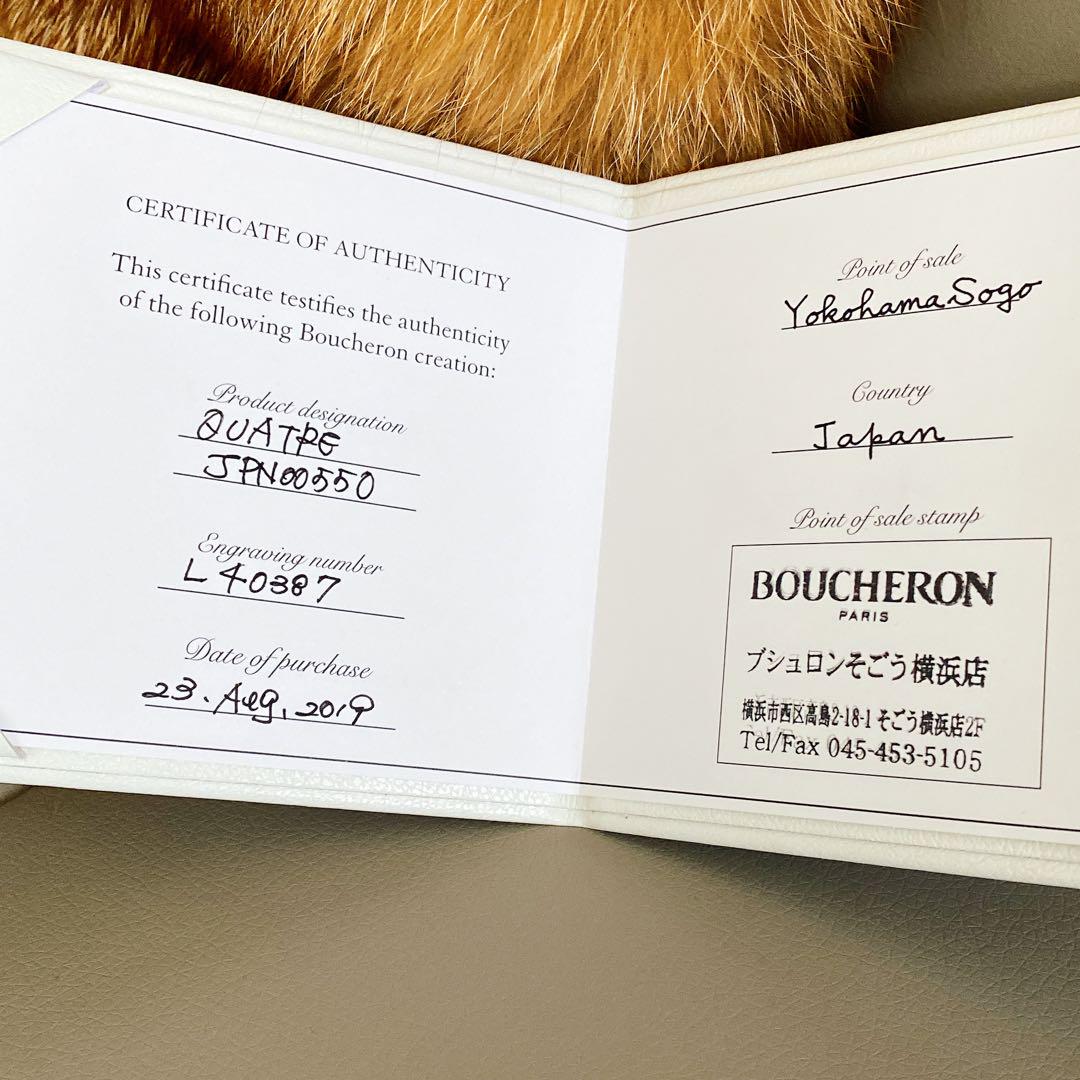 CERTIFICATE OF AUTHENTICITY
This certificate testifies the authenticity
of the following Boucheron creation:
Product designation
QUATRE
JPN00550
Engraving number
L40387
Date of purchase
23. Aug, 2019
Point of sale
Yokohama Sogo
Country
Japan
Point of sale stamp
BOUCHERON
PARIS
ブシュロンそごう横浜店
横浜市西区高島2-18-1 そごう横浜店2F
Tel/Fax 045-453-5105